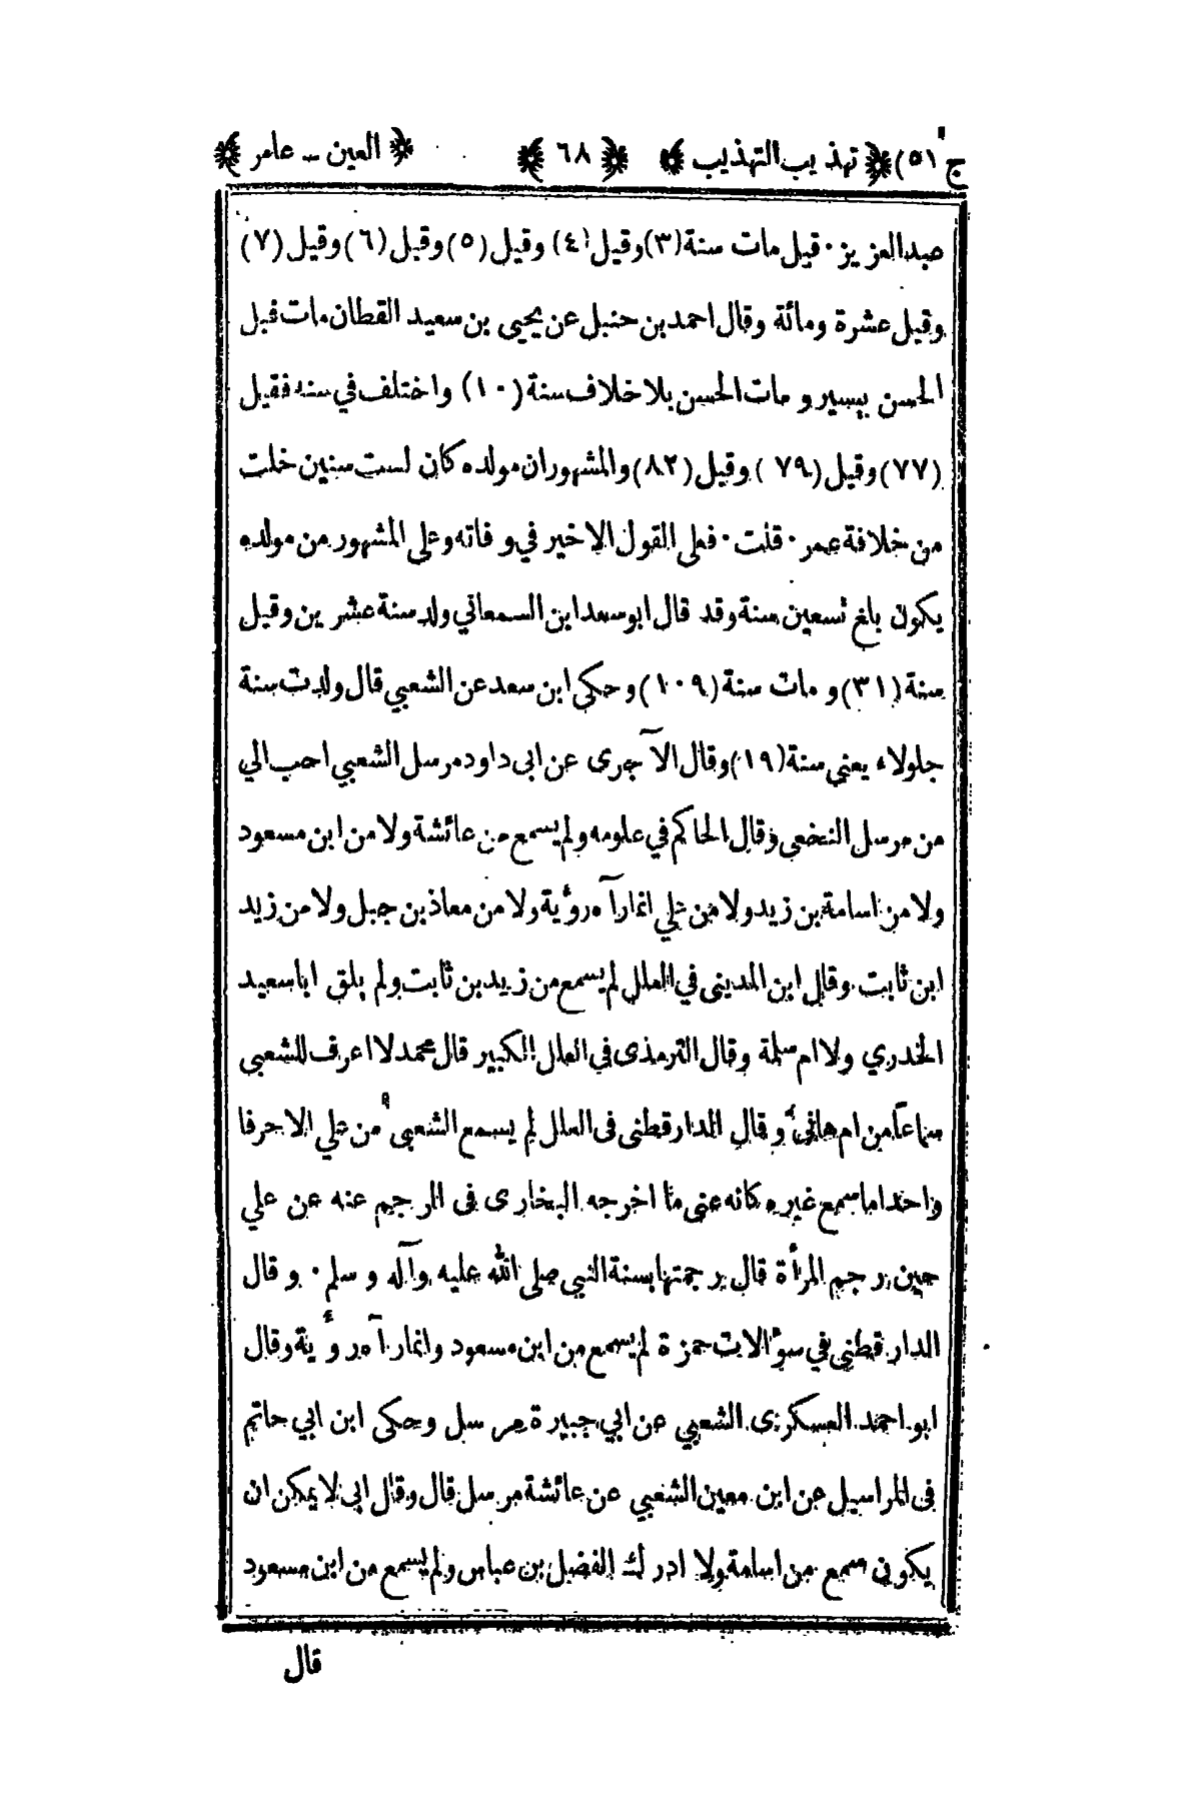 ج (٥١) ﴿ تهذيب التهذيب ﴾ ﴿ ٦٨ ﴾ ﴿ العين – عامر ﴾
عبد العزيز · قيل مات سنة (٣) وقيل (٤) وقيل (٥) وقيل (٦) وقيل (٧)
وقيل عشرة ومائة وقال احمد بن حنبل عن يحيى بن سعيد القطان مات قبل
الحسن بيسير و مات الحسن بلا خلاف سنة (١٠) واختلف في سنه فقيل
(٧٧) وقيل (٧٩) وقيل (٨٢) والمشهور ان مولده كان لست سنين خلت
من خلافة عمر · قلت · فعلى القول الاخير في وفاته وعلى المشهور من مولده
يكون بلغ تسعين سنة وقد قال ابوسعد ابن السمعاني ولد سنة عشرين وقيل
سنة (٣١) و مات سنة (١٠٩) وحكى ابن سعد عن الشعبي قال ولدت سنة
جلولاء يعني سنة (١٩) وقال الآجرى عن ابى داود مرسل الشعبي احب الي
من مرسل النخعى وقال الحاكم في علومه ولم يسمع من عائشة ولا من ابن مسعود
ولا من اسامة بن زيد ولا من علي انما رآه رؤية ولا من معاذ بن جبل ولا من زيد
ابن ثابت · وقال ابن المدينى في العلل لم يسمع من زيد بن ثابت ولم يلق اباسعيد
الخدري ولا ام سلمة وقال الترمذى في العلل الكبير قال محمد لا اعرف للشعبى
سماعاً من ام هانئ وقال الدارقطنى فى العلل لم يسمع الشعبى من علي الا حرفا
واحدا ما سمع غيره كانه عنى ما اخرجه البخارى فى الرجم عنه عن علي
حين رجم المرأة قال رجمتها بسنة النبي صلى الله عليه وآله وسلم · وقال
الدارقطنى في سؤالات حمزة لم يسمع من ابن مسعود وانما رآه رؤية وقال
ابو احمد العسكرى الشعبي عن ابي جبيرة مرسل وحكى ابن ابي حاتم
فى المراسيل عن ابن معين الشعبي عن عائشة مرسل قال وقال ابى لا يمكن ان
يكون سمع من اسامة ولا ادرك الفضل بن عباس ولم يسمع من ابن مسعود
قال